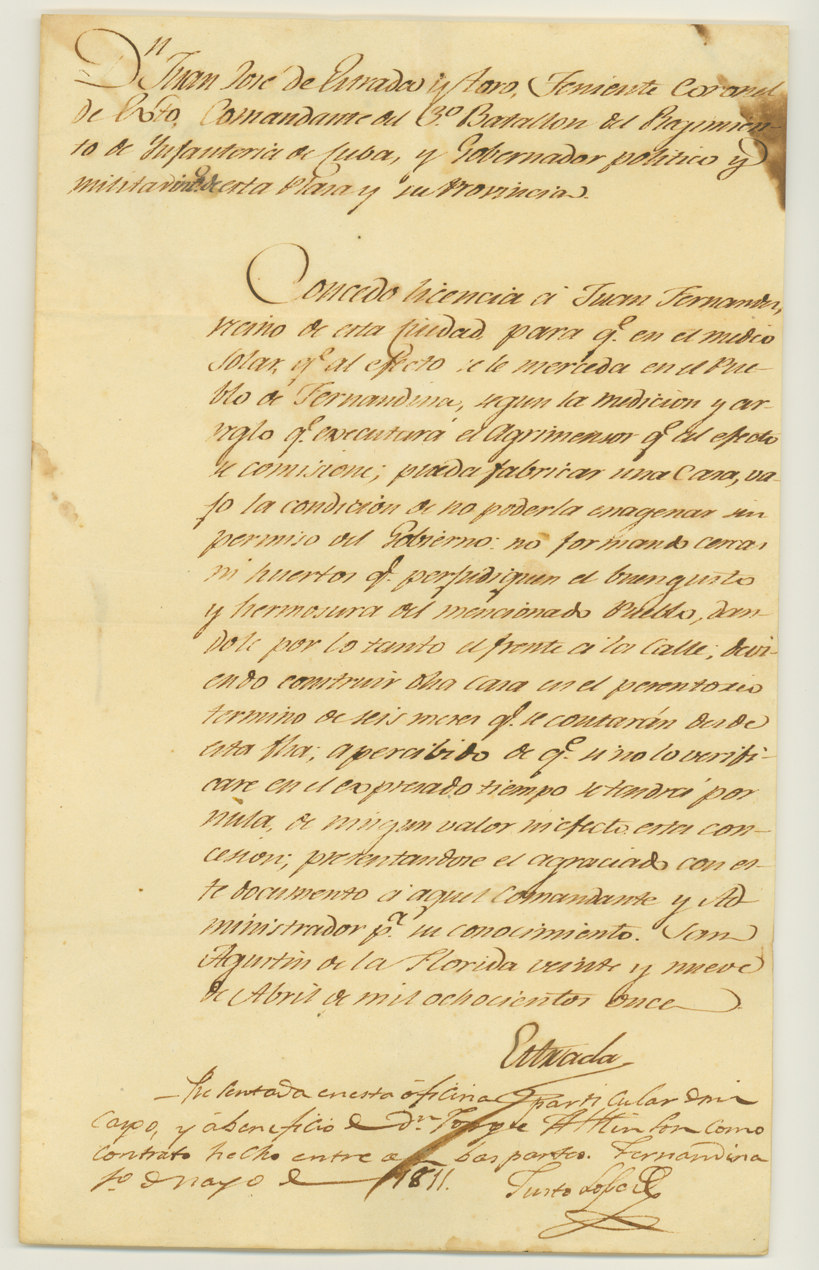 Dn Juan José de Estrada y Toro, Teniente Coronel
de Exto. Comandante del 3º. Batallon del Regimien-
to de Infanteria de Cuba, y Gobernador politico y
militar de esta Plaza y su Provincia.
Concedo licencia á Juan Fernandez,
vecino de esta Ciudad para qe. en el medio
solar, qe. al efecto se le merceda en el Pue-
blo de Fernandina, segun la medicion y ar-
reglo qe. executará el Agrimensor qe. al efecto
se comisione; pueda fabricar una Casa, va-
jo la condición de no poderla enagenar sin
permiso del Gobierno: no formando cercas
ni huertos qe. perjudiquen el buen gusto
y hermosura del mencionado Pueblo, dan-
dole por lo tanto el frente á la Calle; devi-
endo construir dha casa en el perentorio
termino de seis meses qe. se contarán desde
esta fha; apercibido de qe. si no lo verifi-
care en el expresado tiempo se tendrá por
nula, de ningun valor ni efecto esta con-
cesion; presentandose el agraciado con es-
te documento á aquel Comandante y Ad
ministrador pa. su conocimiento. San
Agustin de la Florida veinte y nueve
de Abril de mil ochocientos once
Estrada
Presentada en esta óficina particular de mi
cargo, y á beneficio de Dn. Jorge Atkinson como
contrato hecho entre a bas partes. Fernandina
1º. de mayo de 1811. Justo Lopez